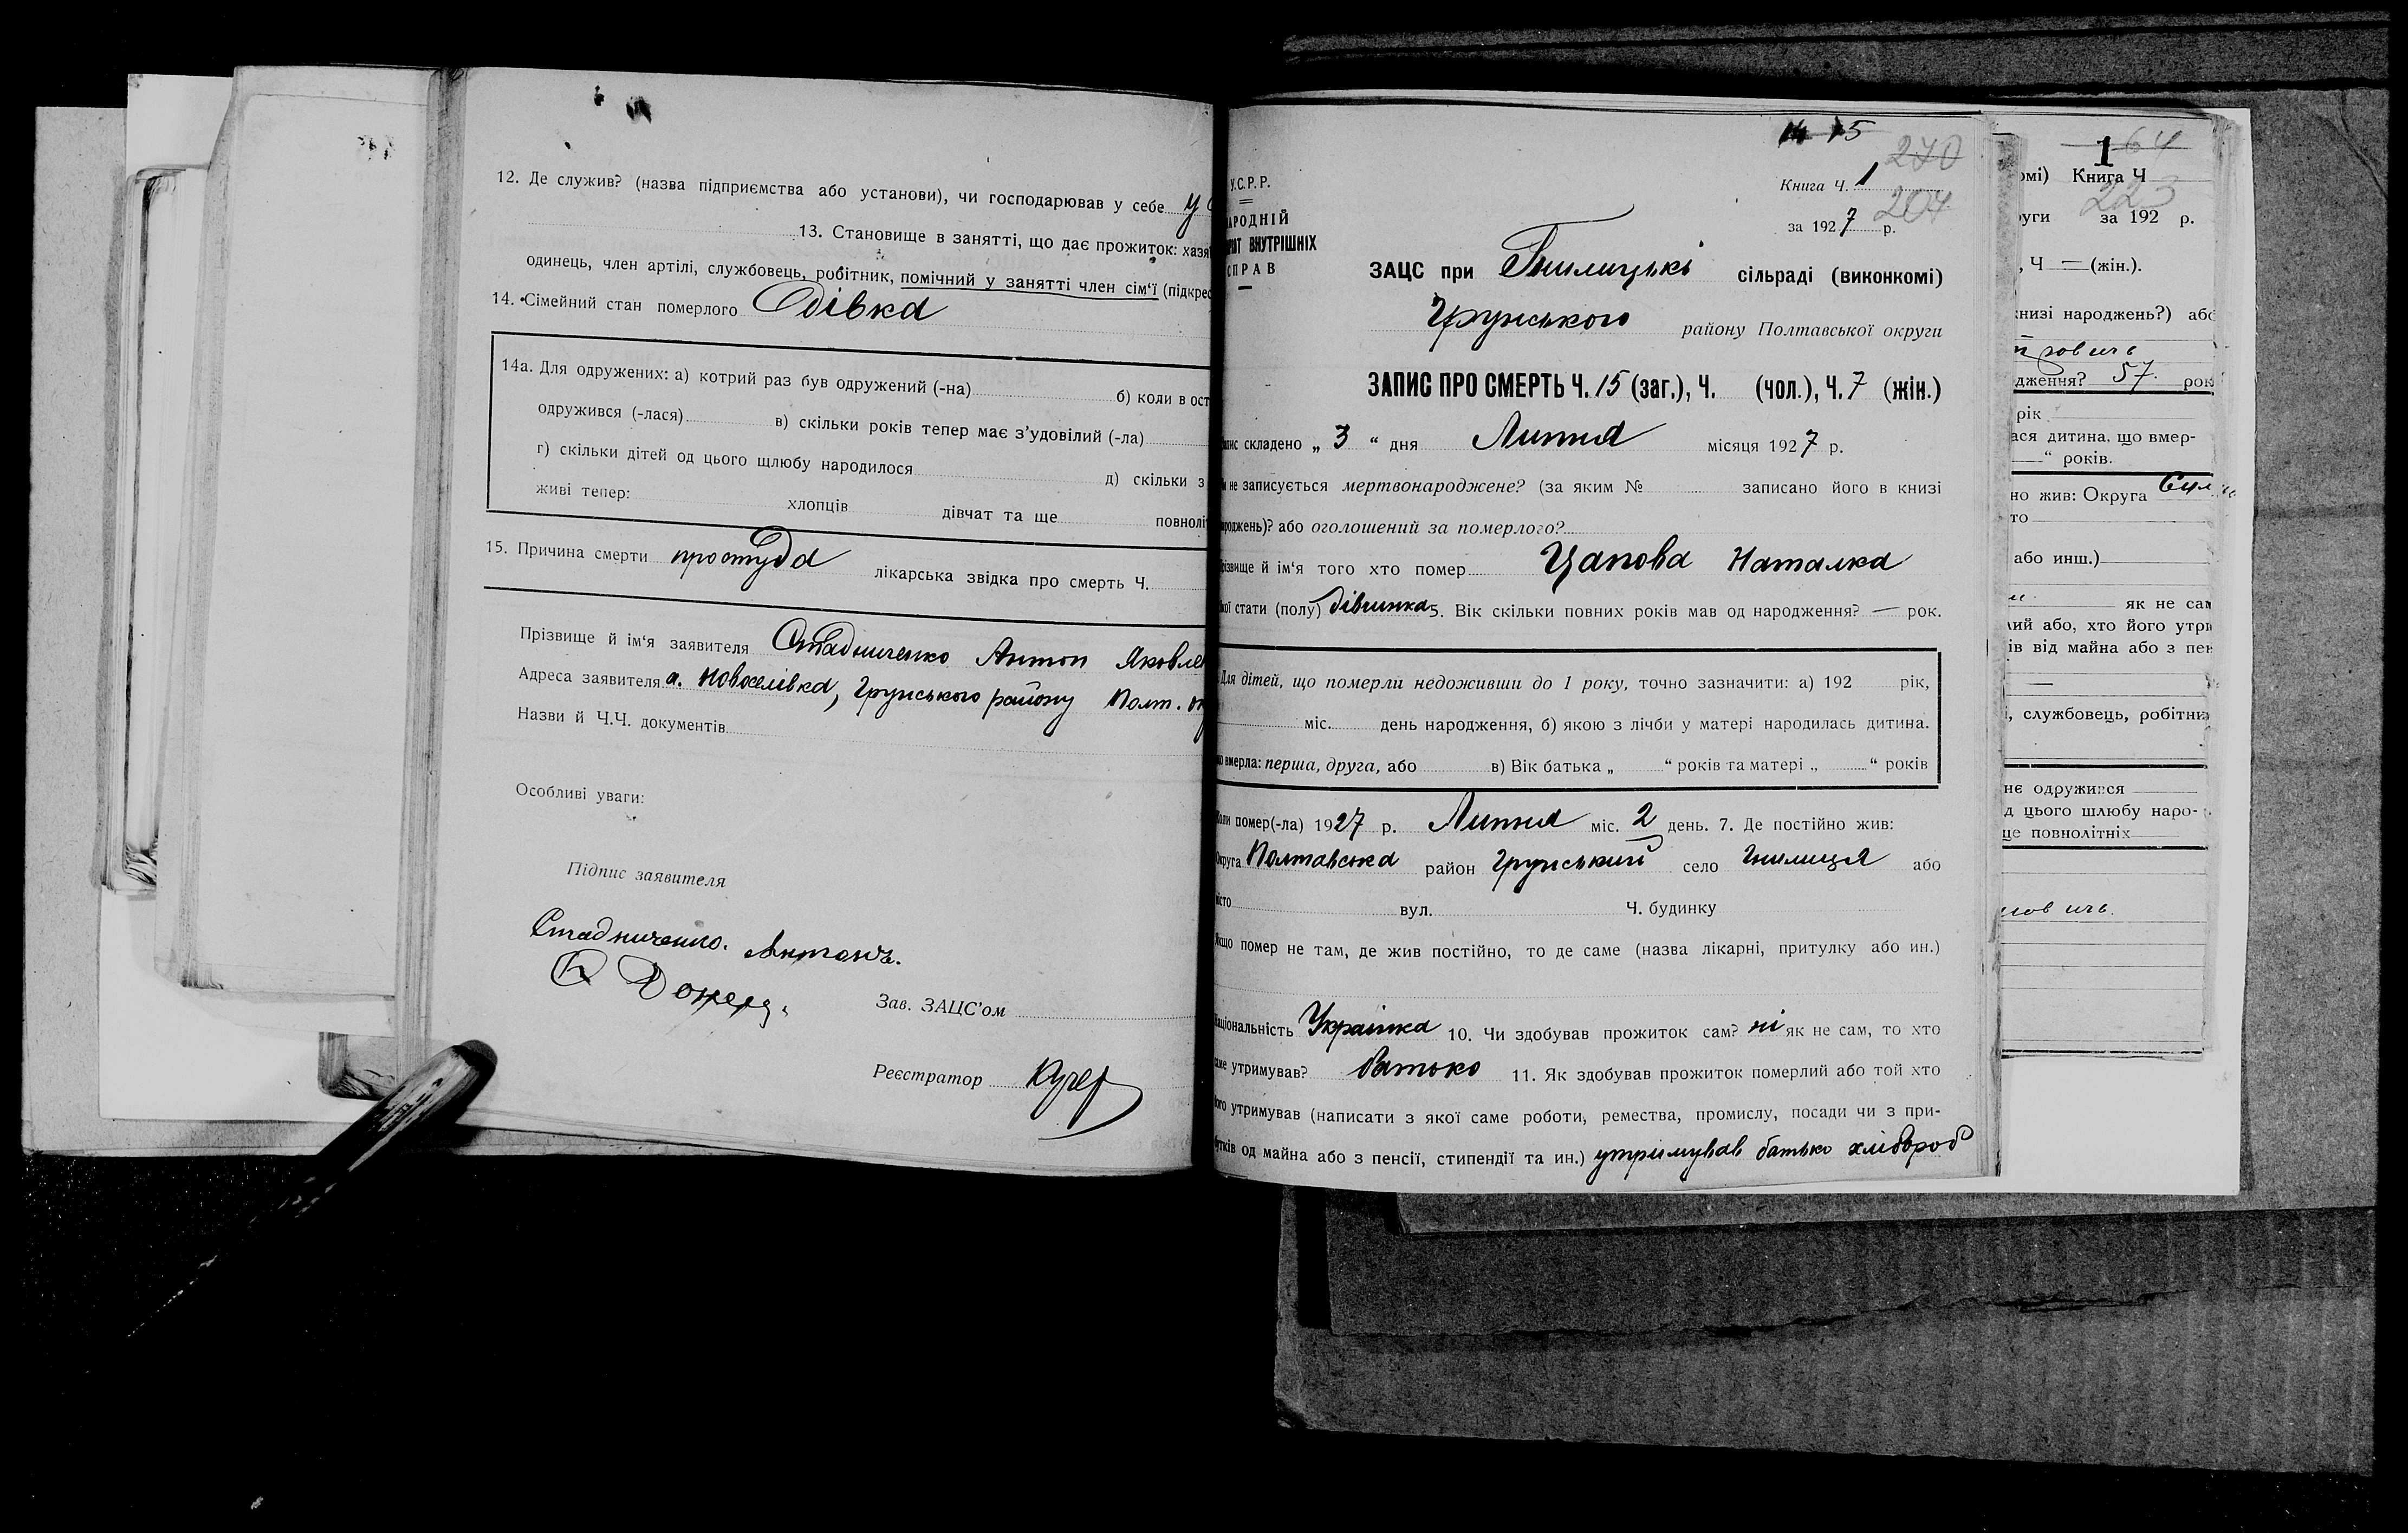 12. Де служив? (назва підприємства або установи), чи господарював у себе у
13. Становище в занятті, що дає прожиток: хазя
одинець, член артілі, службовець, робітник, помічний у занятті член сім'ї (підкрес
14. Сімейний стан померлого дівка
14а. Для одружених: а) котрий раз був одружений (-на) б) коли в ост
одружився (-лася) в) скільки років тепер має з'удовілий (-ла)
г) скільки дітей од цього щлюбу народилося д) скільки з
живі тепер: хлопців дівчат та ще повноліт
15. Причина смерти простуда лікарська звідка про смерть Ч.
Прізвище й ім'я заявителя Стадниченко Антон Яковле
Адреса заявителя х. Новоселівка, Грунського району Полт. ок
Назви й Ч.Ч. документів
Особливі уваги:
Підпис заявителя
Стадниченко. Антонъ.
Зав. ЗАЦС'ом
Реєстратор Кучер
15
270
У.С.Р.Р.
Книга Ч. 1
204
АРОДНІЙ
за 1927 р.
РІЯТ ВНУТРІШНІХ
СПРАВ
ЗАЦС при Гнилицькі сільраді (виконкомі)
Грунського району Полтавської округи
ЗАПИС ПРО СМЕРТЬ Ч. 15 (заг.), Ч. (чол.), Ч. 7 (жін.)
апис складено „ 3 “ дня Липня місяця 1927 р.
и не записується мертвонароджене? (за яким № записано його в книзі
ароджень)? або оголошений за померлого?
різвище й ім'я того хто помер Цапова Наталка
кої стати (полу) дівчинка 5. Вік скільки повних років мав од народження? — рок.
Для дітей, що померли недоживши до 1 року, точно зазначити: а) 192 рік,
міс. день народження, б) якою з лічби у матері народилась дитина.
що вмерла: перша, друга, або в) Вік батька „ “ років та матері „ “ років
Коли помер(-ла) 1927 р. Липня міс. 2 день. 7. Де постійно жив:
Округа Полтавська район Грунський село Гнилиця або
місто вул. Ч. будинку
Якщо помер не там, де жив постійно, то де саме (назва лікарні, притулку або ин.)
Національність Українка 10. Чи здобував прожиток сам? ні як не сам, то хто
саме утримував? батько 11. Як здобував прожиток померлий або той хто
його утримував (написати з якої саме роботи, ремества, промислу, посади чи з при-
бутків од майна або з пенсії, стипендії та ин.) утримував батько хлібороб
64
1
омі) Книга Ч
223
руги за 192 р.
, Ч — (жін.).
книзі народжень?) або
дження? 57 рок
рік
ася дитина, що вмер-
— “ років.
но жив: Округа
то
або инш.)
як не сам
лий або, хто його утри
ів від майна або з пен
—
і, службовець, робітни
нє одружився
д цього шлюбу наро-
ще повнолітніх